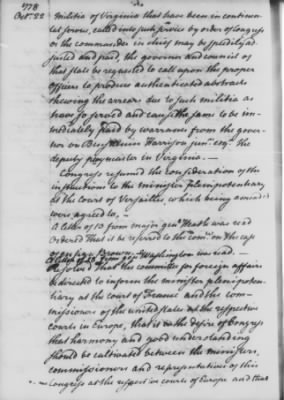 1778
Oct. 22
militia of Virginia that have been in continen-
tal service, called into such service by order of Congress
or the commander in chief may be speedily ad-
justed and paid, the governor and council of
that state be requested to call upon the proper
officers to produce authenticated abstracts
shewing the arrears due to such militia as
have so served and cause the same to be im-
mediately paid by warrants from the gover-
nor on Benjamin Harrison junr. esqr. the
deputy paymaster in Virginia. —
Congress resumed the consideration of the
instructions to the minister plenipotentiary
at the court of Versailles, which being amended
were agreed to, —
A letter of 13 from major genl. Heath was read
Ordered That it be referred to the comee. on the case
of Brown —
A letter of 18 from genl. Washington was read. —
Resolved That the committee for foreign affairs
be directed to inform the minister plenipoten-
tiary at the court of France and the com-
missioners of the united states at the respective
courts in Europe, that it is the desire of Congress
that harmony and good understanding
should be cultivated between the ministers,
commissioners and representatives of this
Congress at the respective courts of Europe and that